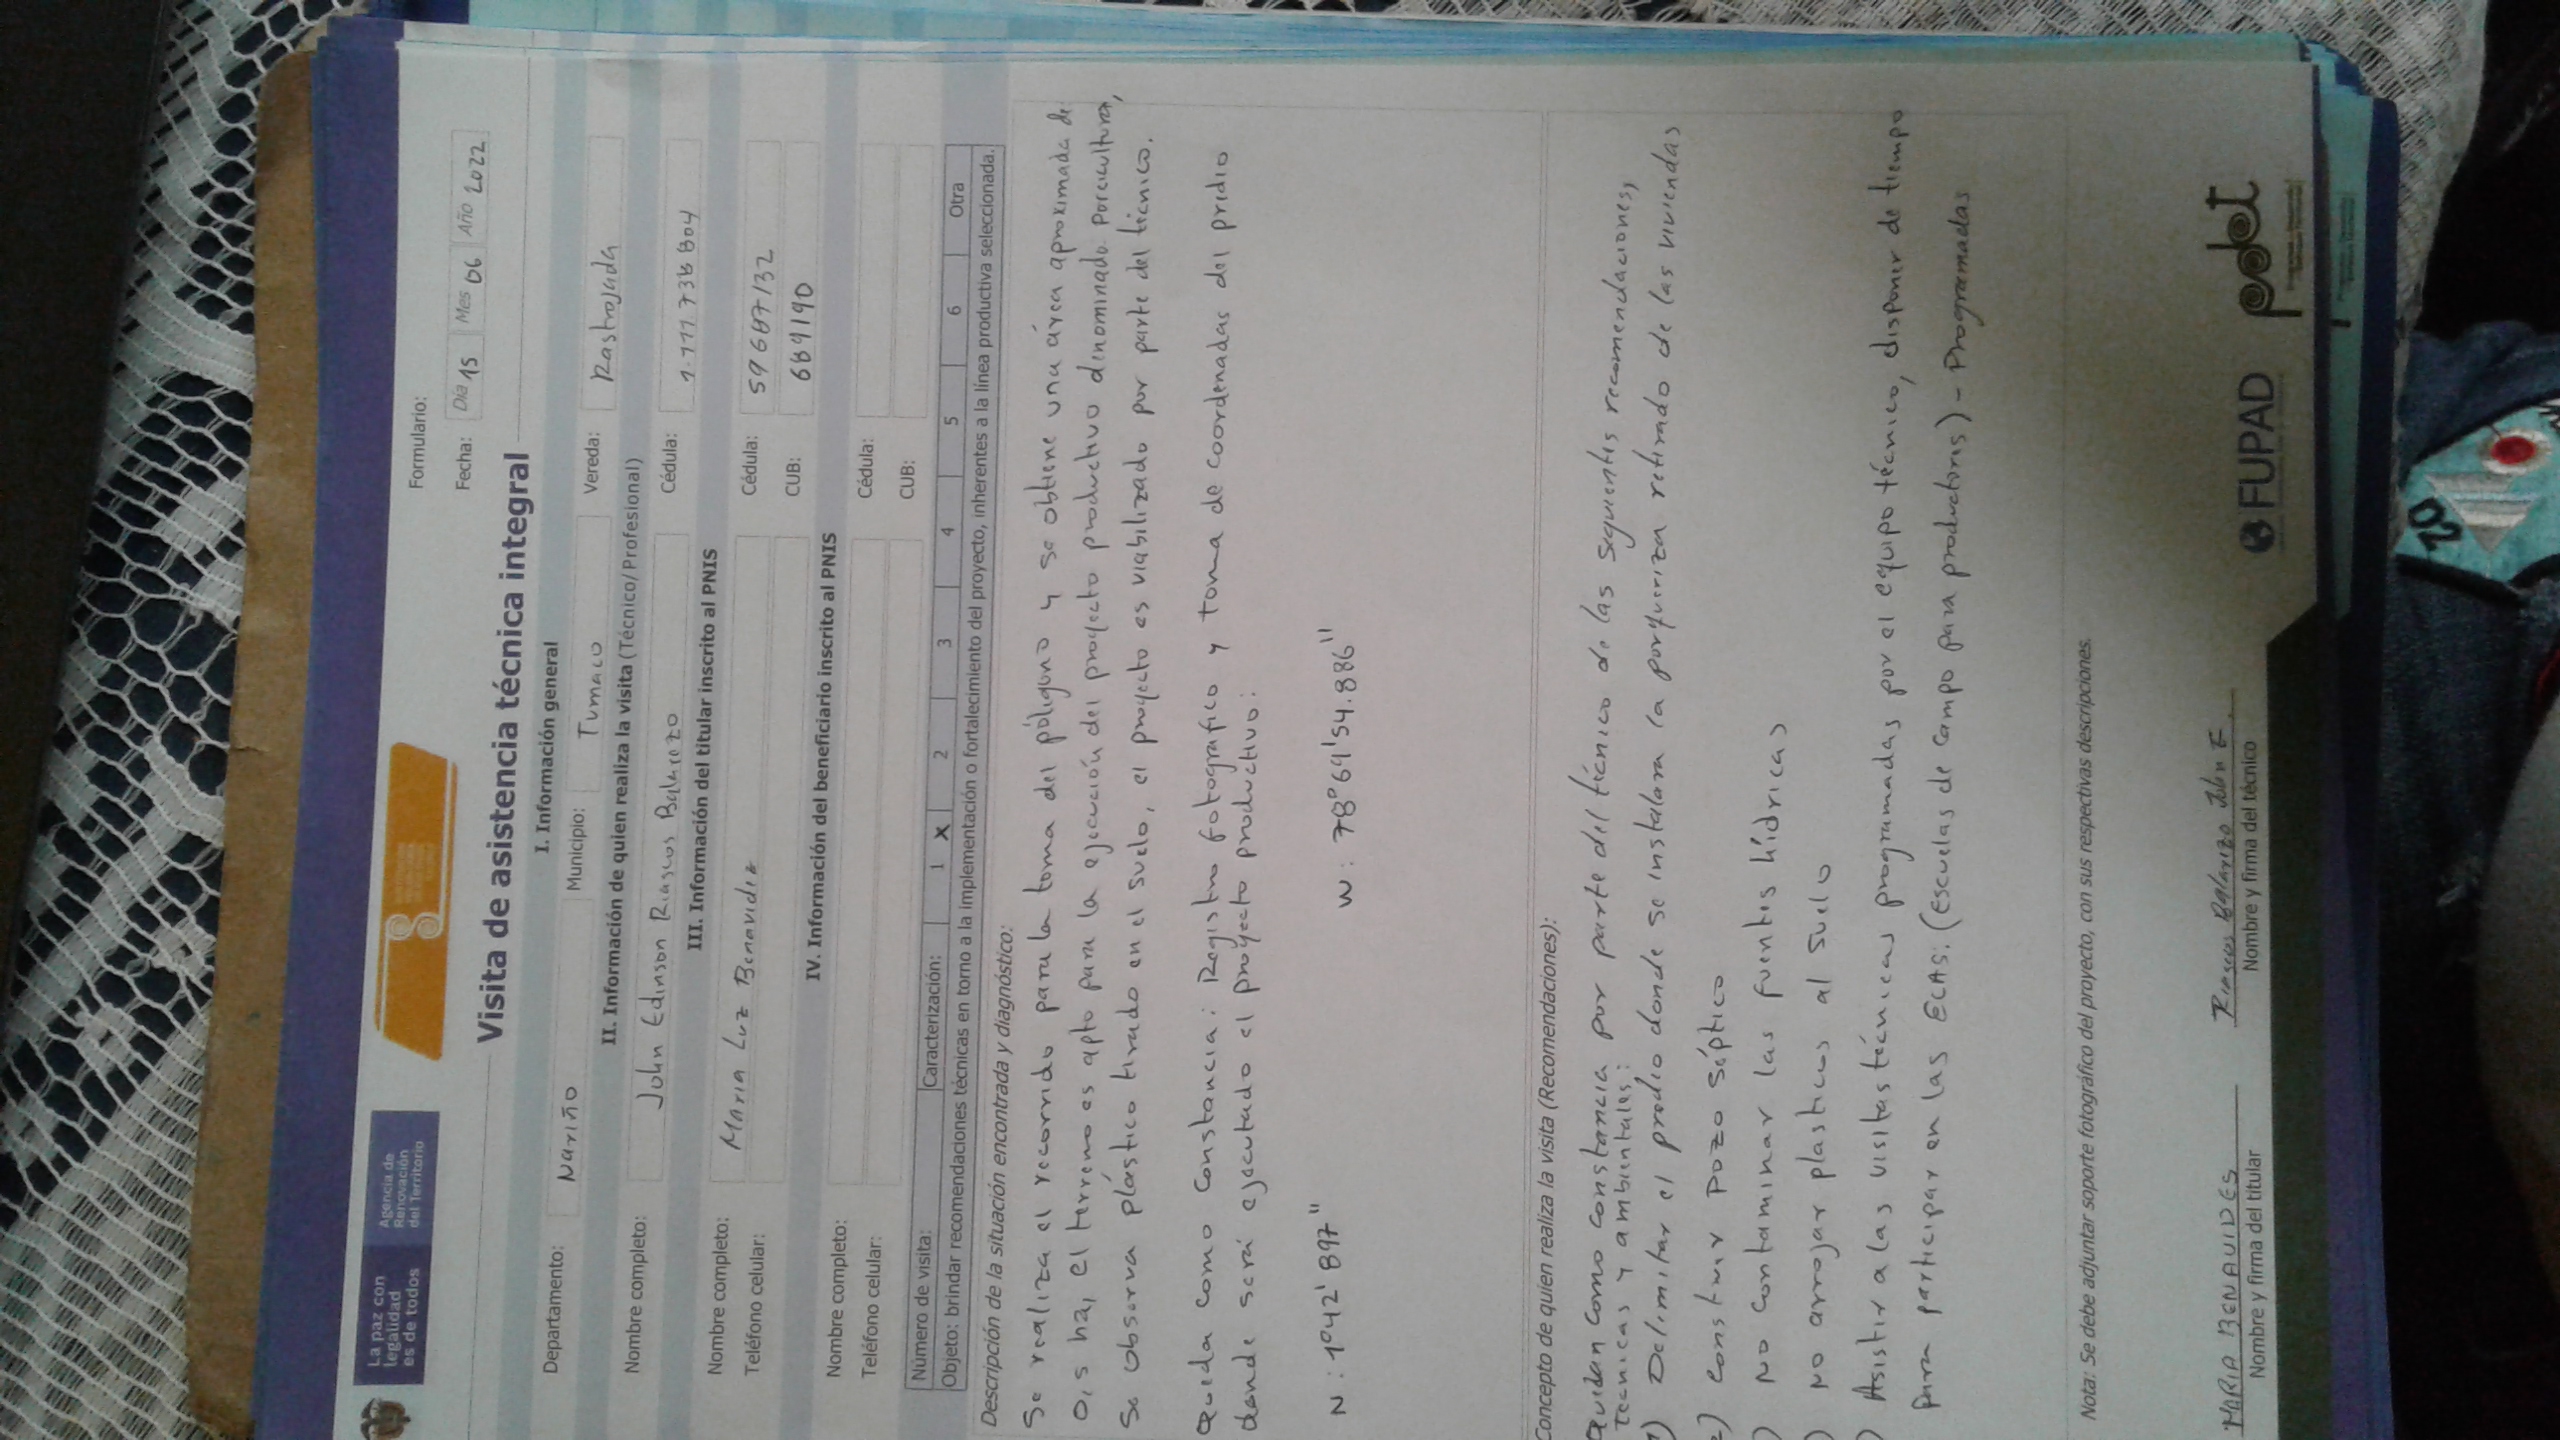 La paz con
legalidad
es de todos
Agencia de
Renovación
del Territorio
Formulario:
Visita de asistencia técnica integral
Fecha: Día 15 Mes 06 Año 2022
I. Información general
Departamento: Nariño Municipio: Tumaco Vereda: Rastrojada
II. Información de quien realiza la visita (Técnico/Profesional)
Nombre completo: John Edinson Riascos Balanezo Cédula:
III. Información del titular inscrito al PNIS
Nombre completo: Maria Luz Benavidez Cédula: 59687132
Teléfono celular: CUB: 689190
IV. Información del beneficiario inscrito al PNIS
Nombre completo: Cédula:
Teléfono celular: CUB:
Número de visita: Caracterización: 1 X 2 3 4 5 6 Otra
Objeto: brindar recomendaciones técnicas en torno a la implementación o fortalecimiento del proyecto, inherentes a la línea productiva seleccionada.
Descripción de la situación encontrada y diagnóstico:
Se realiza el recorrido para la toma del póligono y se obtiene una área aproximada de
0.5 ha, el terreno es apto para la ejecución del proyecto productivo denominado porcicultura,
se observa plástico tirado en el suelo, el proyecto es viabilizado por parte del tecnico.
Queda como constancia: Registro fotografico y toma de coordenadas del predio
donde será ejecutado el proyecto productivo:
N: 1°42'897" W: 78°69'54.886"
Concepto de quien realiza la visita (Recomendaciones):
Quedan como constancia por parte del técnico de las siguientes recomendaciones,
Tecnicas y ambientales:
1) Delimitar el predio donde se instalara la porqueriza retirado de las viviendas
2) construir pozo séptico
) No contaminar las fuentes hídricas
) No arrojar plasticos al suelo
) Asistir a las visitas técnicas programadas por el equipo técnico, disponer de tiempo
para participar en las ECAS: (Escuelas de Campo para productores) - Programadas
Nota: Se debe adjuntar soporte fotográfico del proyecto, con sus respectivas descripciones.
MARIA BENAVIDES
Nombre y firma del titular
Riascos Balanezo John E.
Nombre y firma del técnico
FUPAD
pdet